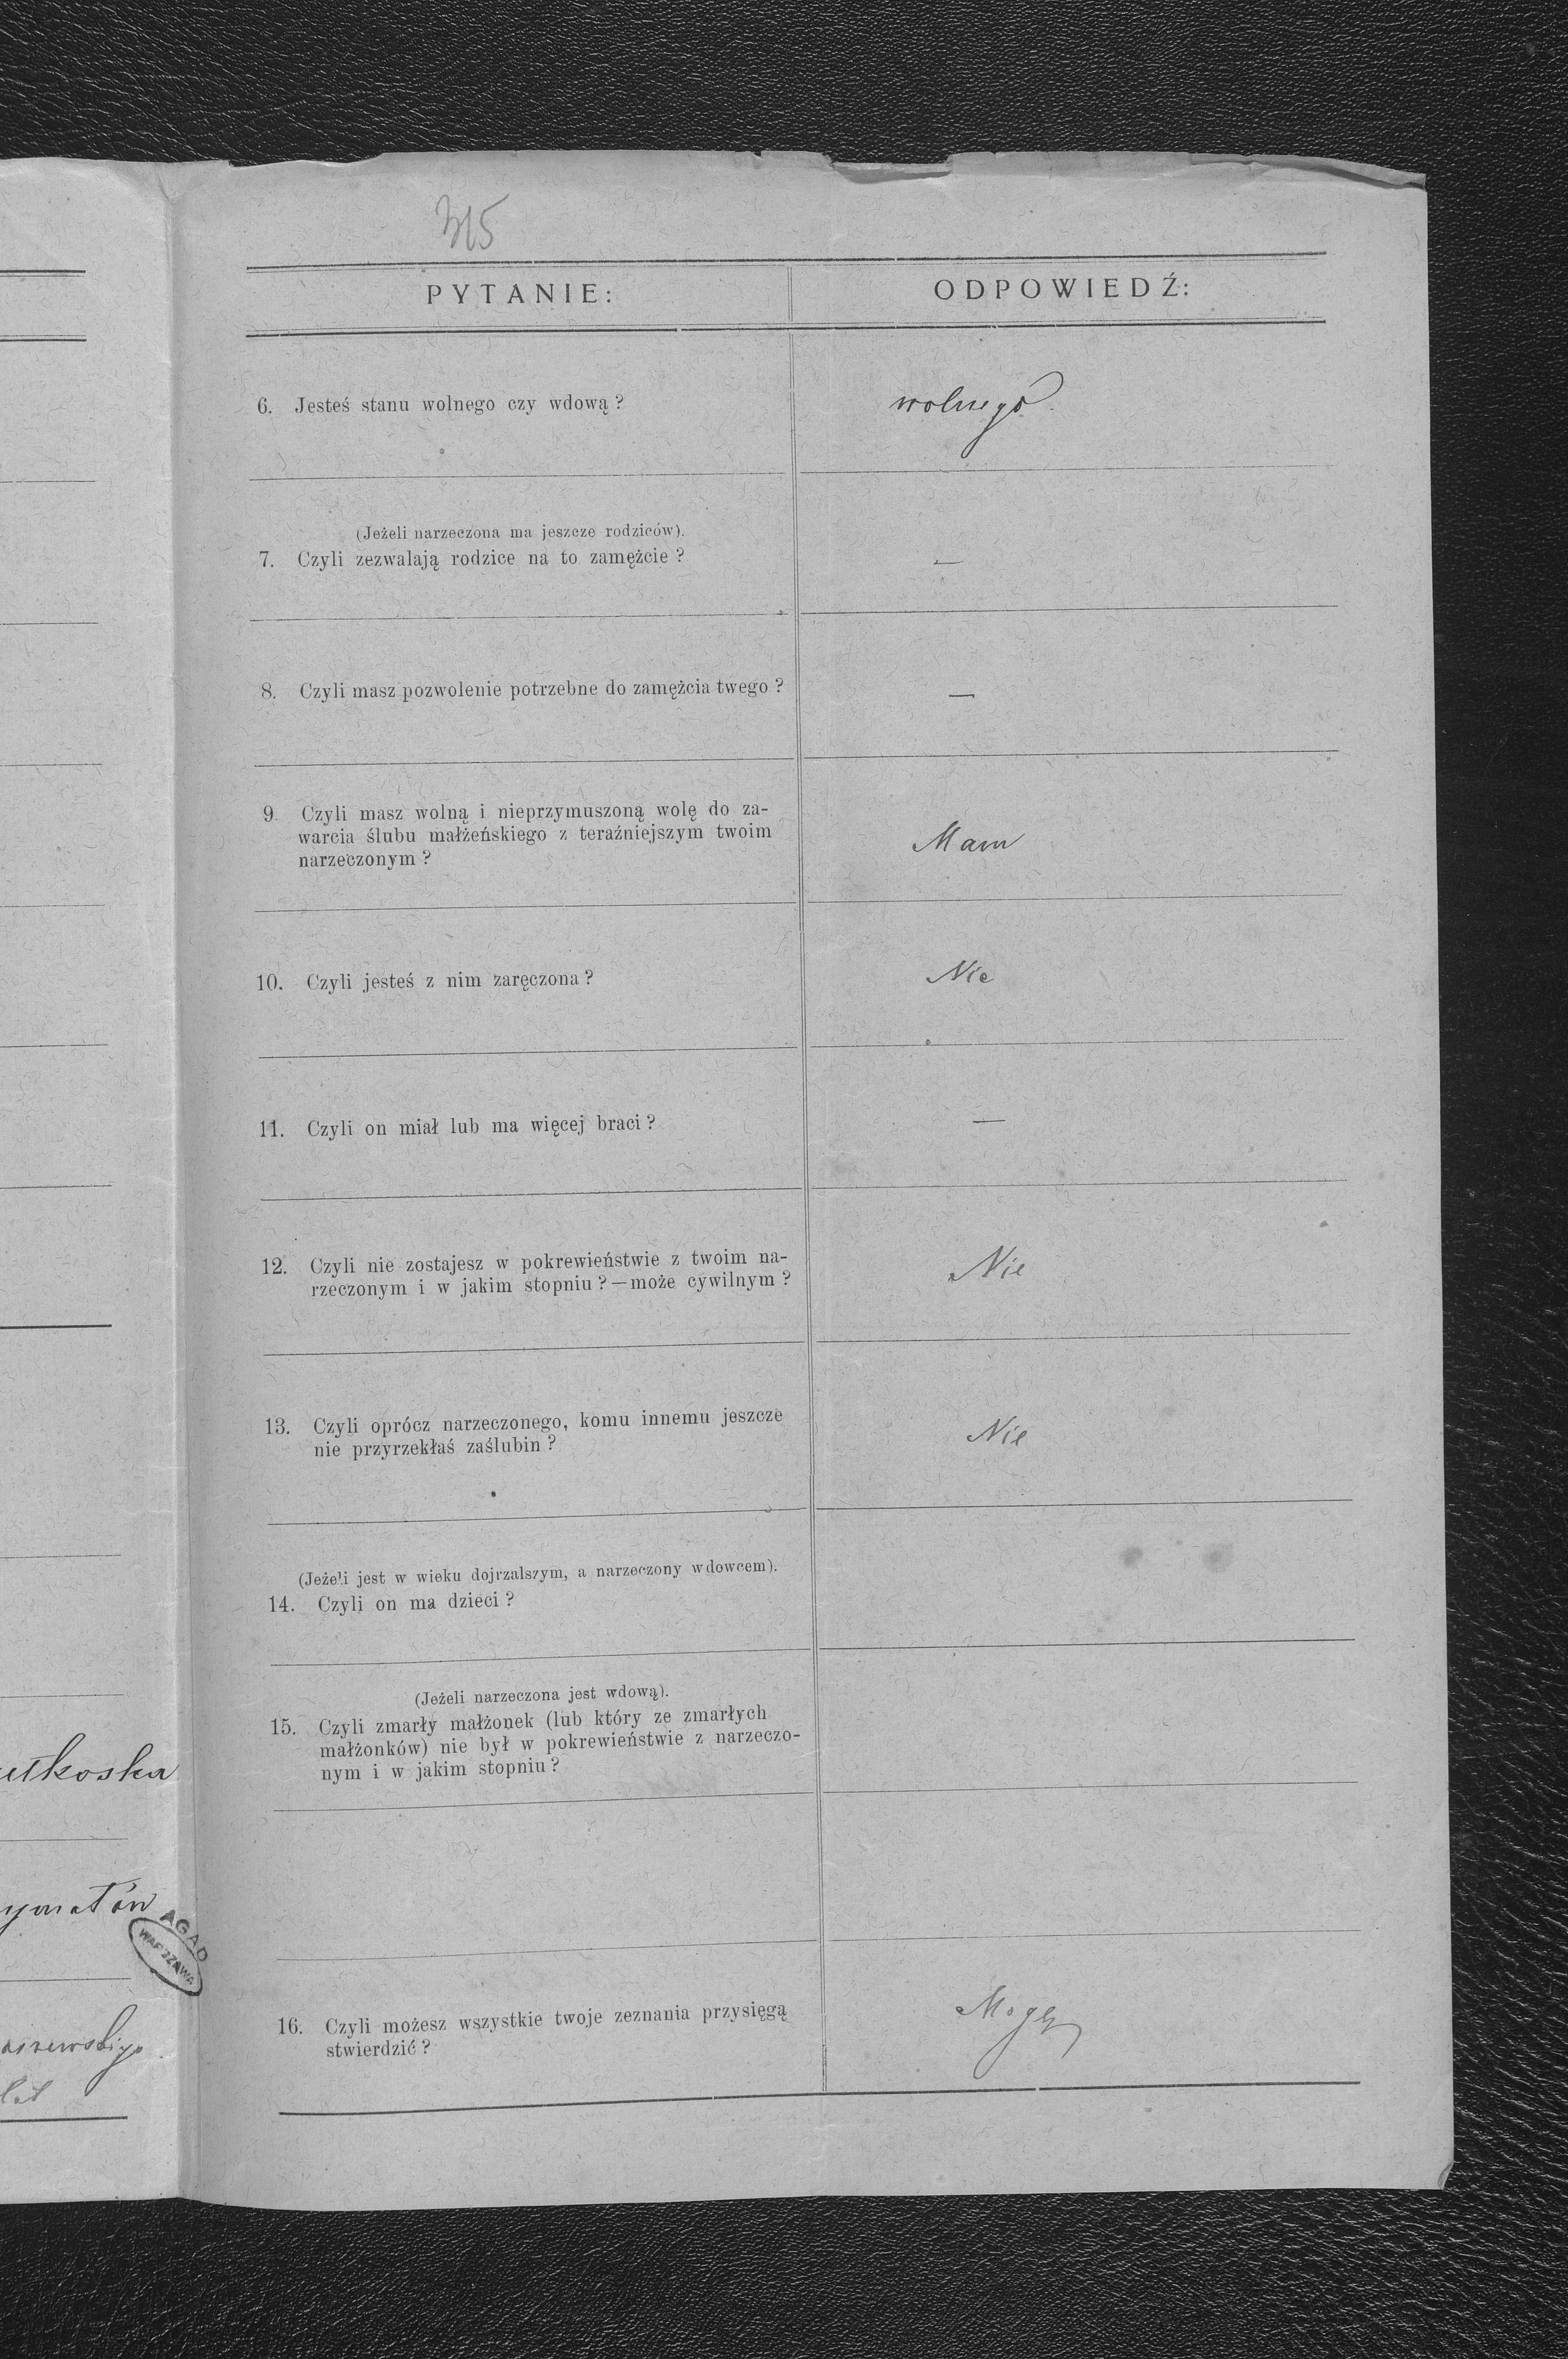 315
PYTANIE: ODPOWIEDŹ:
6. Jesteś stanu wolnego czy wdową? wolnego
(Jeżeli narzeczona ma jeszcze rodziców).
7. Czyli zezwalają rodzice na to zamężcie? —
8. Czyli masz pozwolenie potrzebne do zamężcia twego? —
9. Czyli masz wolną i nieprzymuszoną wolę do za-
warcia ślubu małżeńskiego z teraźniejszym twoim
narzeczonym? Mam
10. Czyli jesteś z nim zaręczona? Nie
11. Czyli on miał lub ma więcej braci? —
12. Czyli nie zostajesz w pokrewieństwie z twoim na-
rzeczonym i w jakim stopniu?—może cywilnym? Nie
13. Czyli oprócz narzeczonego, komu innemu jeszcze
nie przyrzekłaś zaślubin? Nie
(Jeżeli jest w wieku dojrzalszym, a narzeczony wdowcem).
14. Czyli on ma dzieci?
(Jeżeli narzeczona jest wdową).
15. Czyli zmarły małżonek (lub który ze zmarłych
małżonków) nie był w pokrewieństwie z narzeczo-
nym i w jakim stopniu?
AGAD
WARSZAWA
16. Czyli możesz wszystkie twoje zeznania przysięgą
stwierdzić? Mogę
lat